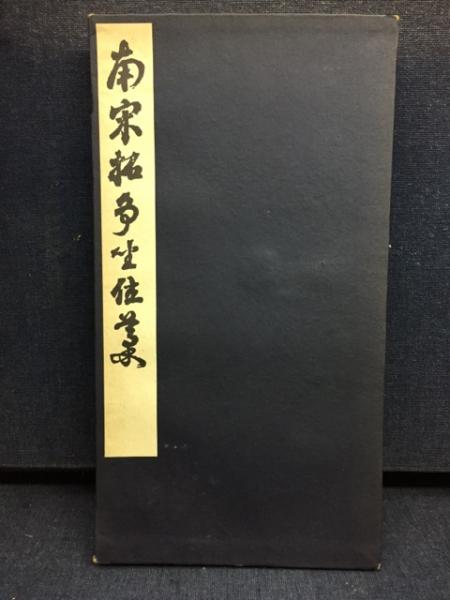 南宋拓争坐位藁